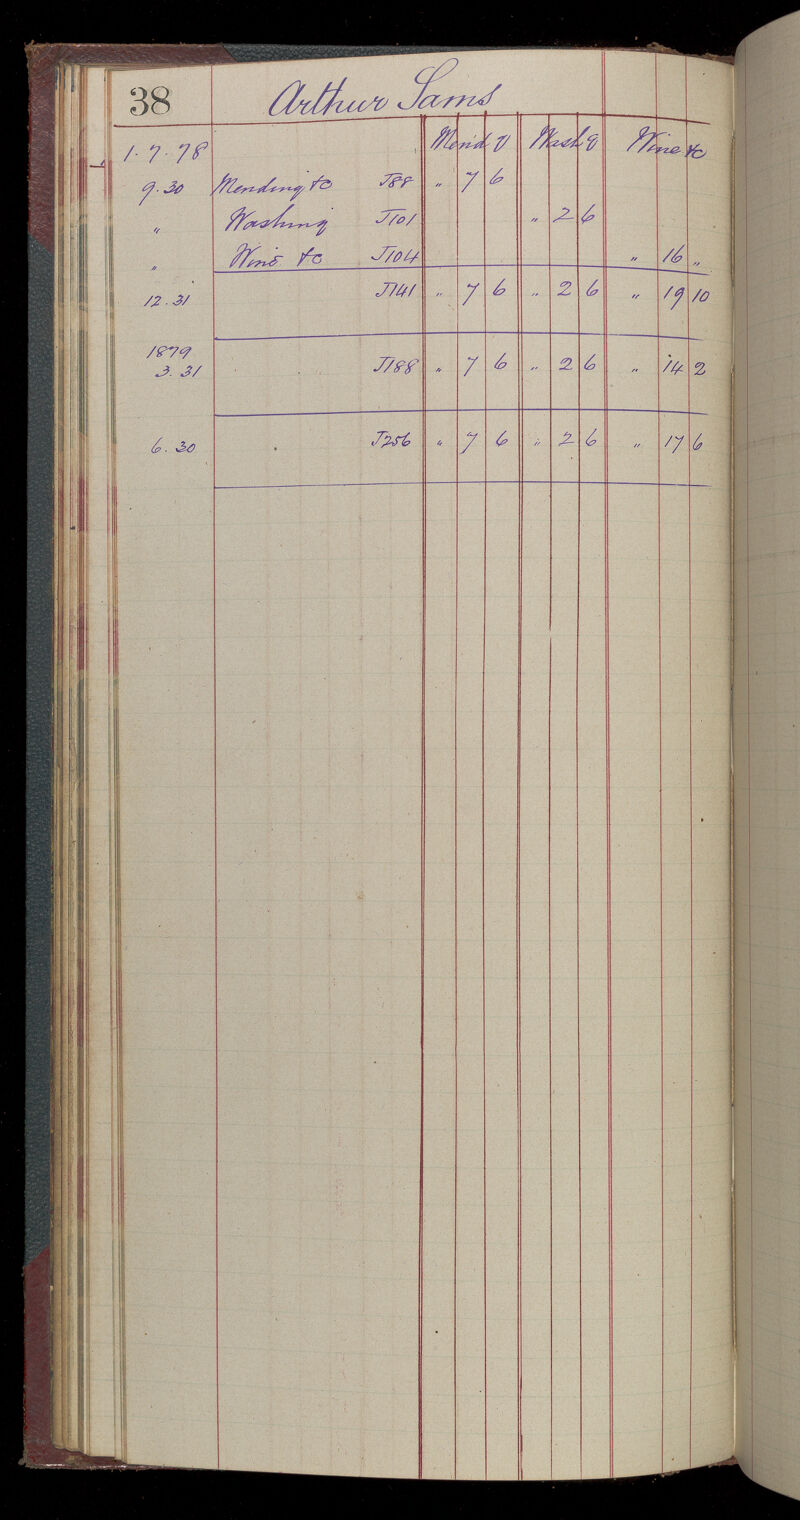 38 Arthur Sams
1.7.78 Mend g Wash g Wine &c
9.30 Mending &c J88 " 7 6
" Washing J101 " 2 6
" Wine &c J104 " 16 "
12.31 J141 " 7 6 " 2 6 " 19 10
1879
3.31 J188 " 7 6 " 2 6 " 14 2
6.30 J256 " 7 6 " 2 6 " 17 6